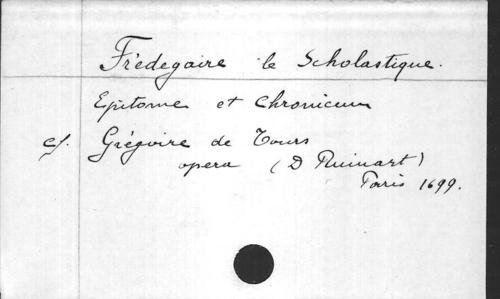 Frédegaire le Scholastique.
Epitome et Chronicum
cf. Grégoire de Tours
opera (D Ruinart)
Paris 1699.